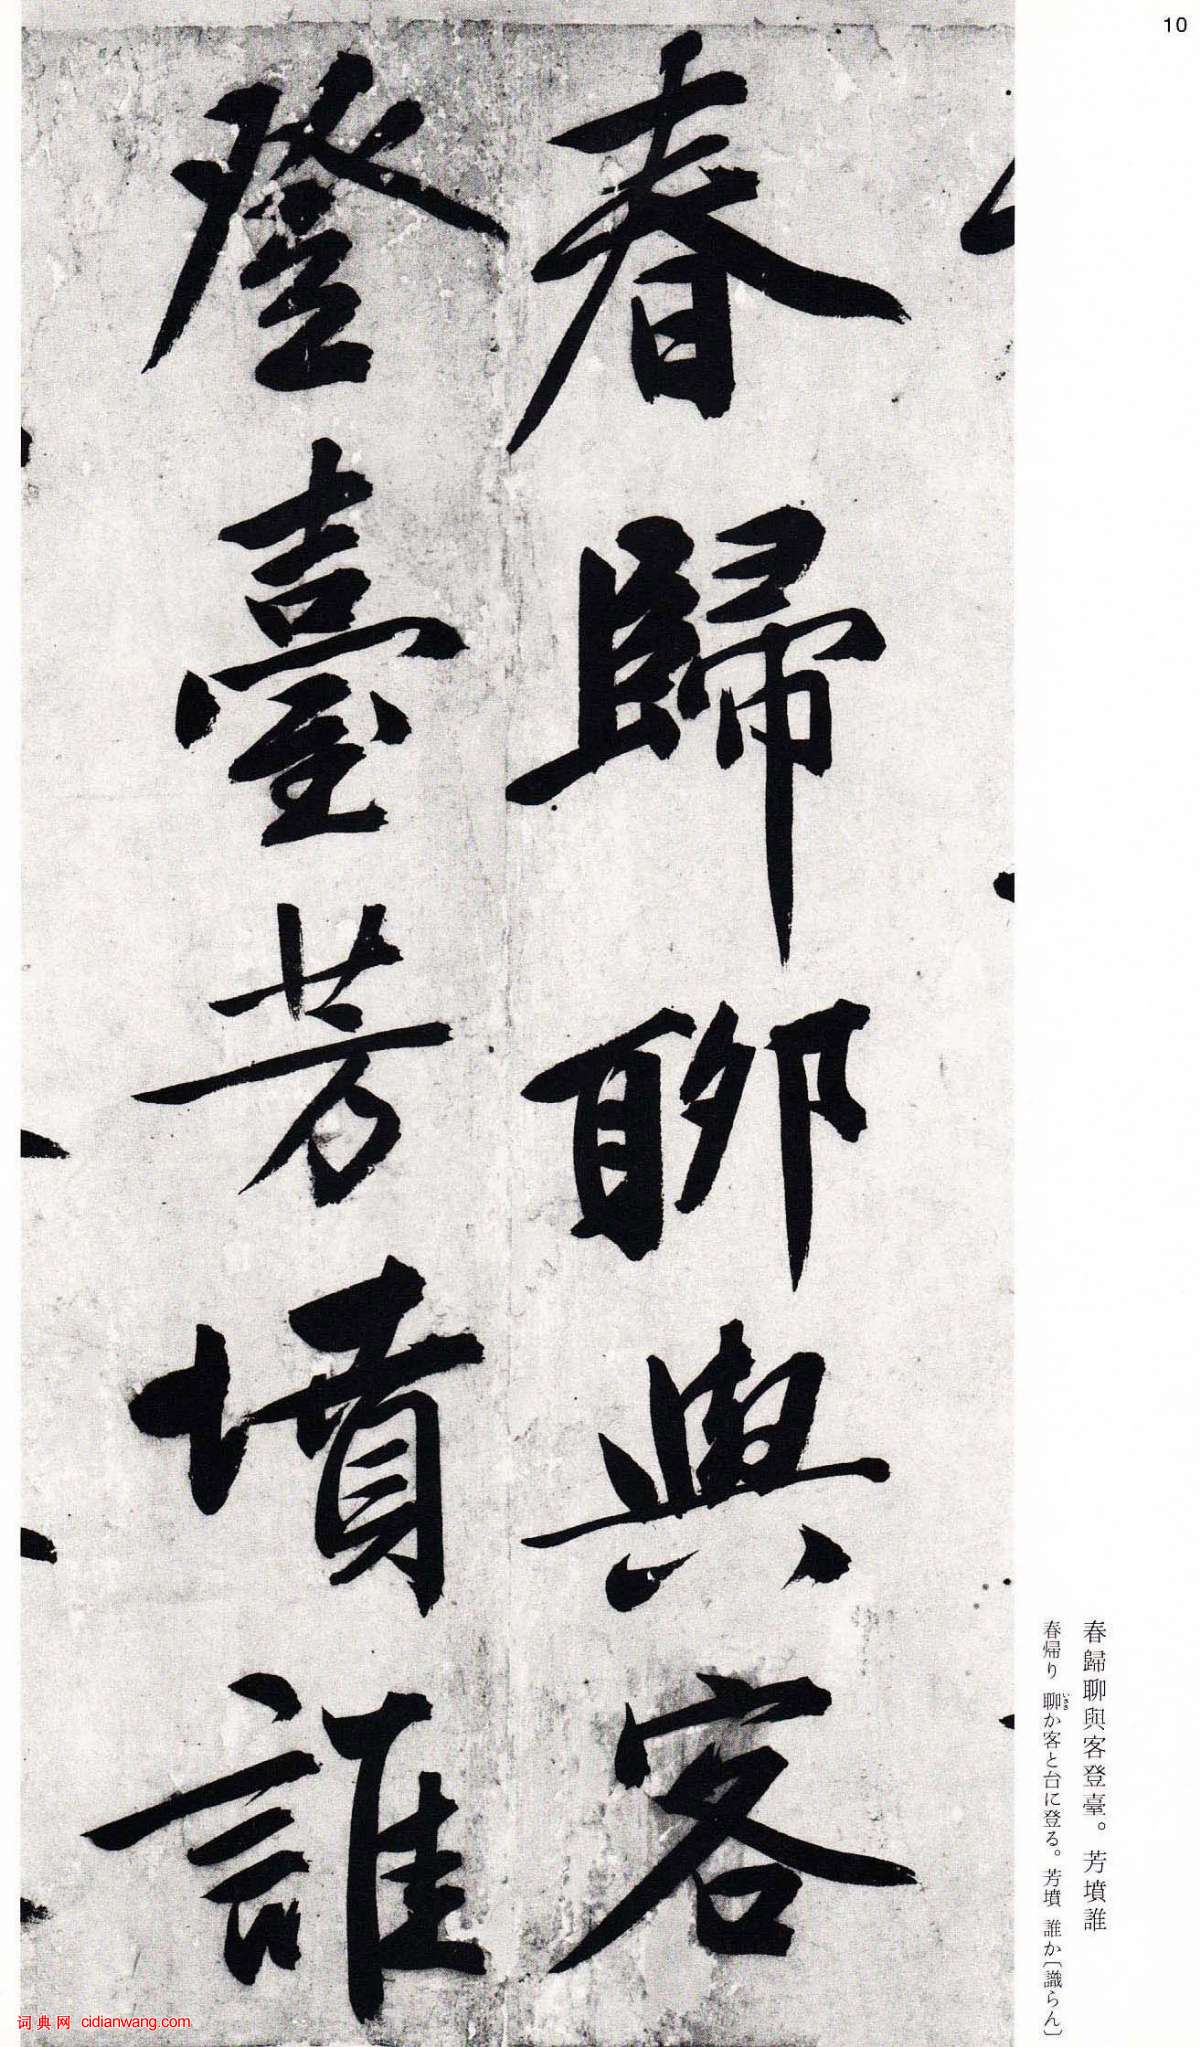 10
春歸聊與客
登臺芳墳誰
春歸聊與客登臺。芳墳誰
春帰り 聊か客と台に登る。芳墳 誰か〔識らん〕
いささ
词典网 cidianwang.com